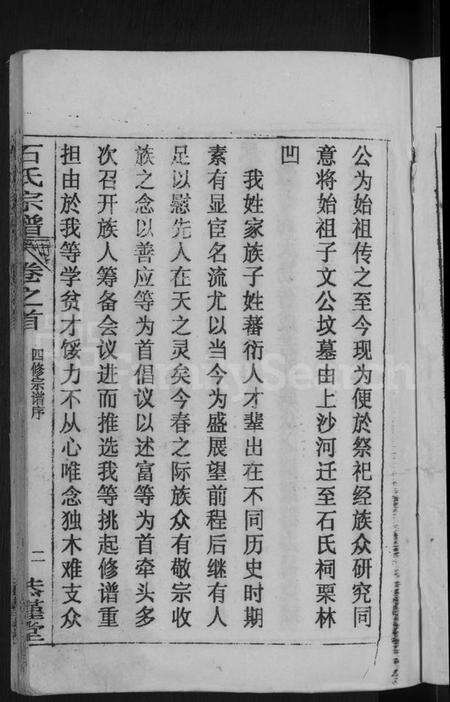 公为始祖传之至今现为便於祭祀经族众研究同
意将始祖子文公坟墓由上沙河迁至石氏祠栗林
凹
我姓家族子姓蕃衍人才辈出在不同历史时期
素有显宦名流尤以当今为盛展望前程后继有人
足以慰先人在天之灵矣今春之际族众有敬宗收
族之念以善应等为首倡议以述富等为首牵头多
次召开族人筹备会议进而推选我等挑起修谱重
担由於我等学贫才馁力不从心唯念独木难支众
石氏宗谱 卷之首 四修宗谱序 二 堂
FamilySearch